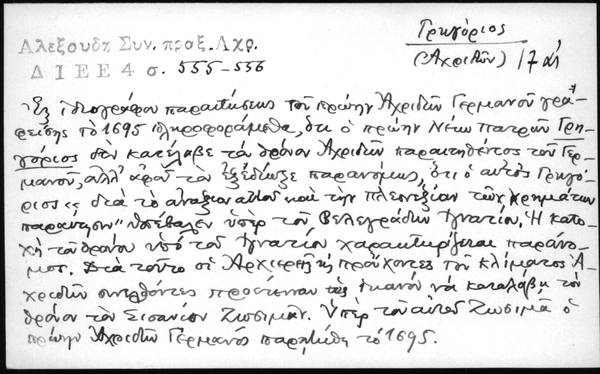 Γρηγόριος
(Ἀχριδῶν) 17 αἰ
Αλεξούδη Συν. προξ. Αχρ.
ΔΙΕΕ 4 σ. 555-556
Ἐξ ἰδιογράφου παραιτήσεως τοῦ πρώην Ἀχριδῶν Γερμανοῦ γρα-
φείσης τὸ 1695 πληροφορούμεθα, ὅτι ὁ πρώην Νέων Πατρῶν Γρη-
γόριος δὲν κατέλαβε τὸν θρόνον Ἀχριδῶν παραιτηθέντος τοῦ Γερ-
μανοῦ, ἀλλ' ἀφοῦ τὸν ἐξεδίωξε παρανόμως, ὅτι ὁ αὐτὸς Γρηγό-
ριος "διὰ τὸ ἀνάξιον αὐτοῦ καὶ τὴν πλεονεξίαν τῶν χρημάτων
παραίτησιν" ὑπέβαλεν ὑπὲρ τοῦ Βελεγράδων Ἰγνατίου. Ἡ κατο-
χὴ τοῦ θρόνου ὑπὸ τοῦ Ἰγνατίου χαρακτηρίζεται παράνο-
μος. Διὰ τοῦτο οἱ Ἀρχιερεῖς κ̀ προὔχοντες τοῦ κλίματος Ἀ-
χριδῶν συνελθόντες προέκριναν ὡς ἱκανὸν νὰ καταλάβῃ τὸν
θρόνον τὸν Σισανίου Ζωσιμᾶν. Ὑπὲρ τοῦ αὐτοῦ Ζωσιμᾶ ὁ
πρώην Ἀχριδῶν Γερμανὸς παρῃτήθη τὸ 1695.